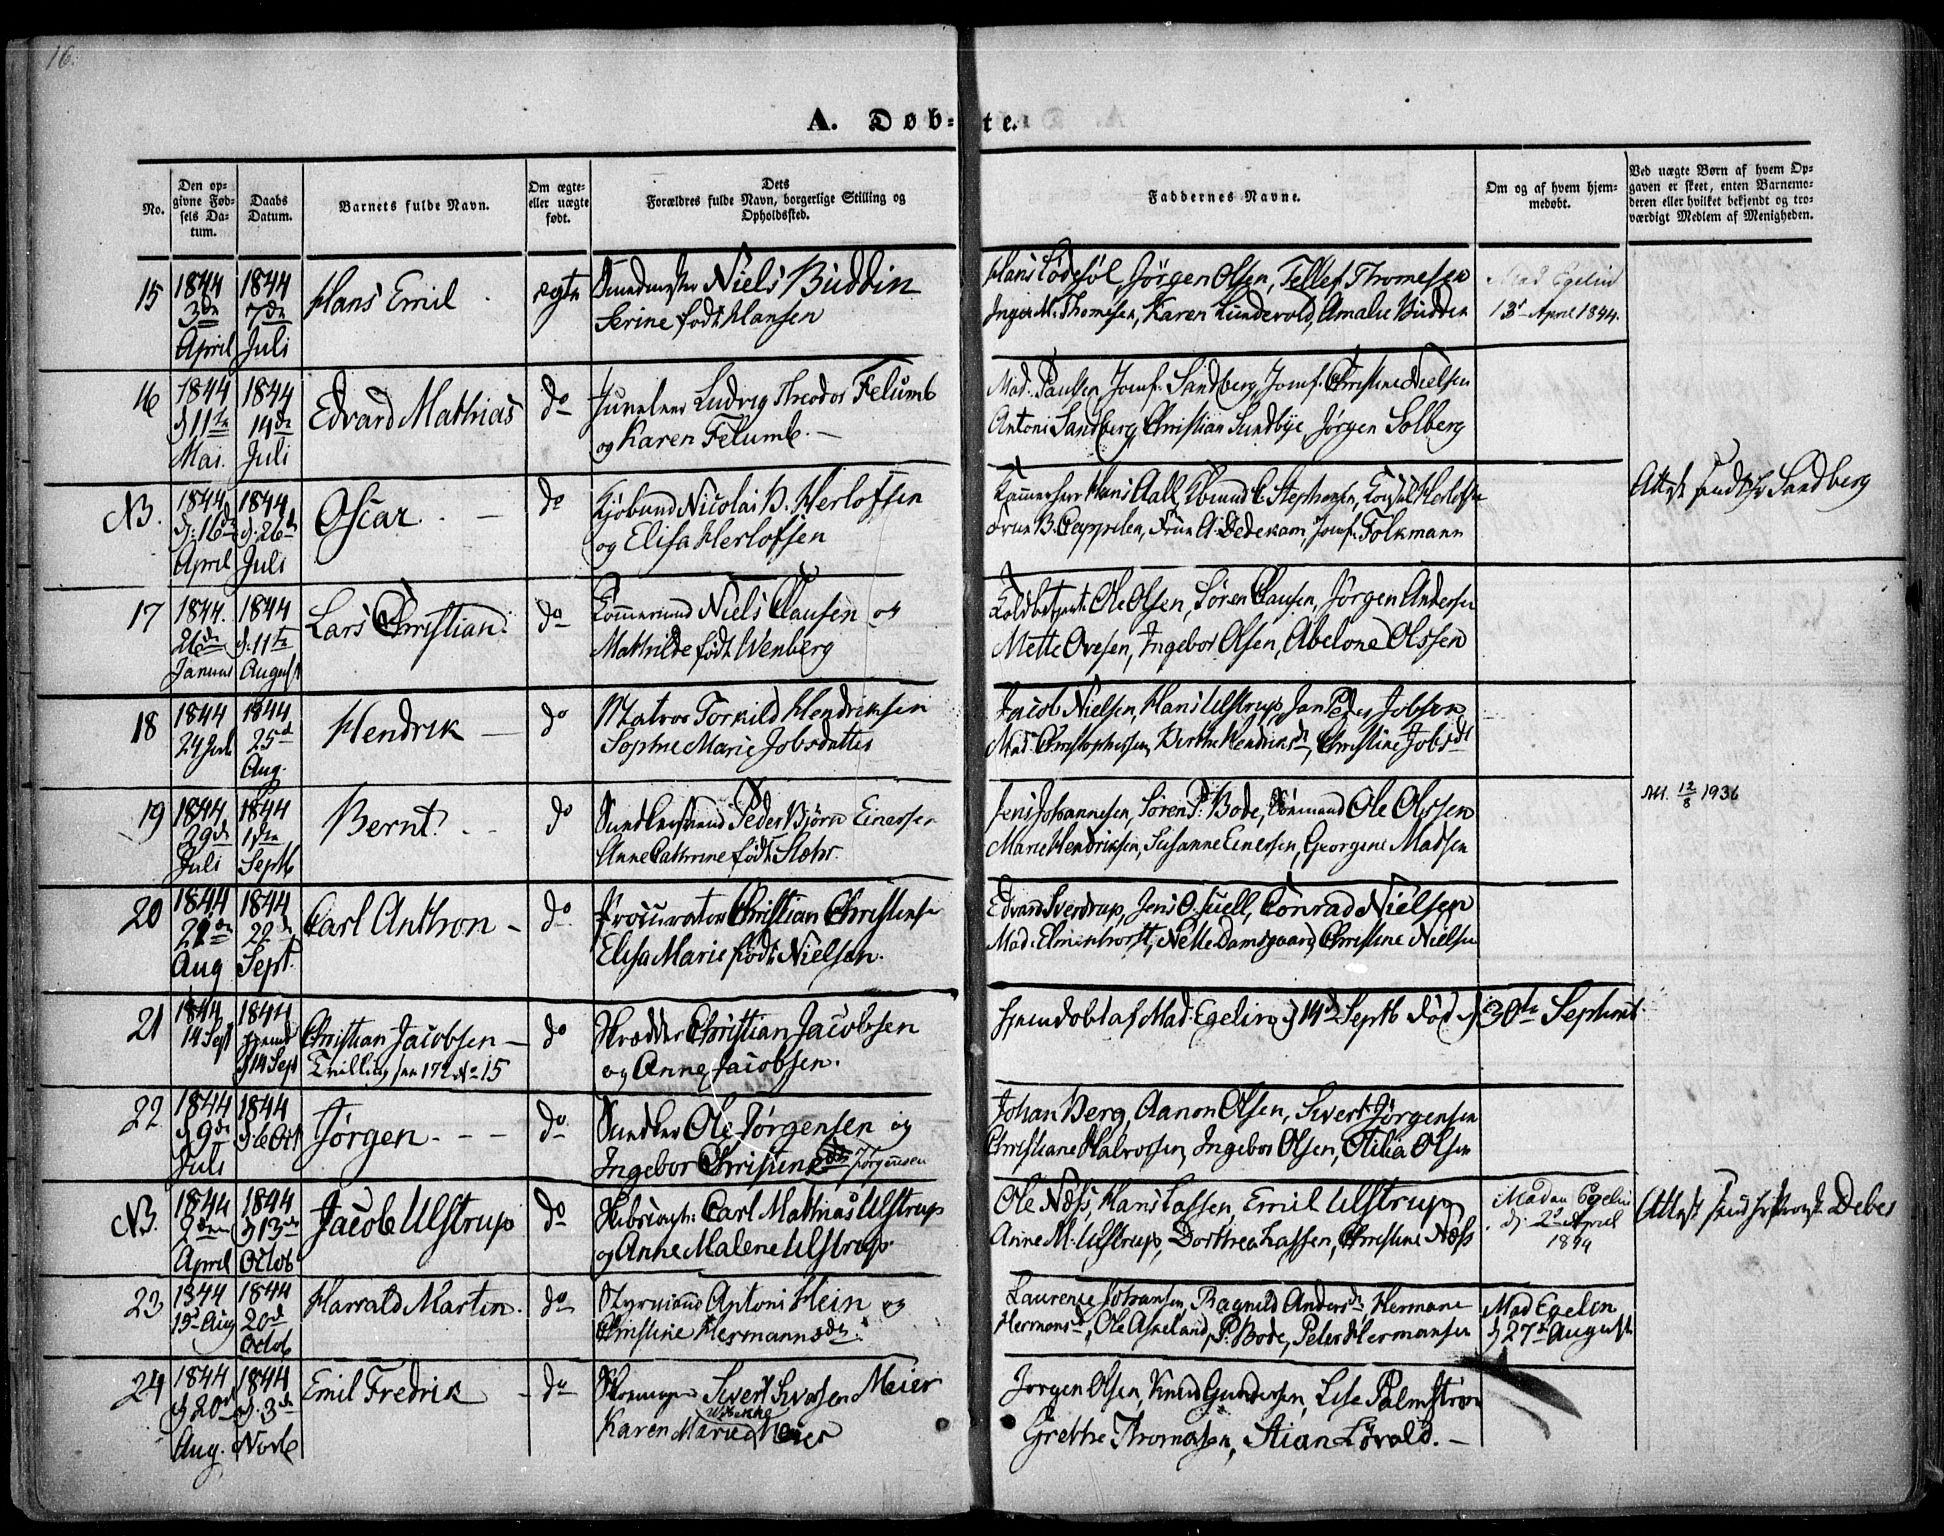 16.
A. Døb-te.
No.
Den op-
givne Fød-
sels Da-
tum.
Daabs
Datum.
Barnets fulde Navn.
Om ægte-
eller uægte
født.
Dets
Forældres fulde Navn, borgerlige Stilling og
Opholdssted.
Faddernes Navne.
Om og af hvem hjem-
medøbt.
Ved uægte Børn af hvem Op-
gaven er skeet, enten Barnemo-
deren eller hvilket bekjendt og tro-
værdigt Medlem af Menigheden.
15
1844
3de
April
1844
7de
Juli
Hans Emil
ægte
Smedmester Niels Buddin
Serine født Hansen
Hans Jørgen Olsen, Tellef Thomesen
Inger M. Thomesen, Karen Lundevold, Amalie Budden
Mad Egelin
13 April 1844.
16
1844
d 11te
Mai.
1844
14de
Juli
Edvard Mathias
do
Juveleer Ludvig Theodor Felumb
og Karen Felumb.
Mad. Paulsen, Jomf. Sandberg, Jomf. Christine Nielsen
Antoni Sandberg, Christian Sundbye, Jørgen Solberg
NB.
1844
d. 16de
April
1844
d. 26d
Juli
Oscar
do
Kjøbmd Nicolai B. Herlofsen
og Elisa Herlofsen
Kammerherr Hans Aall, Stephansen, Herlofsen
Frue B. Peppelen, Frue A. Dedekam, Jomf. Folkmann
Attest Sandberg
17
1844.
26de
Januar
1844
d. 11te
August
Lars Christian
do
Niels Clausen og
Mathilde født Wenberg
Ole Olsen, Søren Clausen, Jørgen Andersen
Mette Ovesen, Ingebor Olsen, Abelone Olssen
18
1844
24 Juli
1844
25d
Aug.
Hendrik
do
Matros Torkild Hendriksen
Sophie Marie Jobsdatter
Jacob Nielsen, Hans Ulstrup, Jan Peder Jobsen
Mad. Christophersen, Berthe Hendriksd, Christine Jobsd
19
1844
29de
Juli
1844
1de
Septb
Bernt
do
Peder Bjørn Einersen
Anne Cathrine født Stohr.
Jens Johannesen, Søren P. Bode, Ole Olssen
Marie Hendriksen, Susanne Einersen, Georgine Madsen
Att. 12/8 1936
20
1844
Aug
1844
22de
Sept.
Carl Anthon
do
Procurator Christian Christensen
Elisa Marie født Nielsen.
Edvard Sverdrup, Jens O. Juell, Conrad Nielsen
Mad. Elmenhorst, Nelle Damsgaard, Christine Nielsen
21
1844
14 Sept
1844
hjemd
d 14 Sept
Christian Jacobsen
Tvilling 172 No 15
do
Skrædder Christian Jacobsen
og Anne Jacobsen.
hjemdøbt af Mad. Egelin d 14d Septb død d 30te Septembr
22
1844
d 9de
Juli
1844
d. 6 Oct
Jørgen
do
Ole Jørgensen og
Ingebor Christensdtr Jørgensen
Johan Berg, Aanon Olsen, Sivert Jørgensen
Christiane Halvorsen, Ingebor Olsen, Otilia Olsen
NB.
1844
2den
April
1844
d 13de
Octob
Jacob Ulstrup
do
Carl Mathias Ulstrup
og Anne Malene Ulstrup
Ole Næss, Hans Lassen, Emil Ulstrup
Anne M. Ulstrup, Dorthea Lassen, Christine Næss
Madam Egelin
d. 2d April
1844
Attest Debes
23
1844
15 Aug
1844
20d
Octob
Harrald Martin
do
Styrmand Antoni Hein og
Christine Hermannsdr
Laurentze Johansen, Ragnild Andersdr, Hermane
Hermansd, Ole Askeland, P. Bode, Peter Hermansen
Mad Egelin
d 27d August
24
1844
d 20d
Aug.
1844
d. 3de
Novb
Emil Fredrik
do
Skomager Sivert Sivertsen Meier
Karen Marie Wibekke Meier
Jørgen Olsen, Knud Gundersen, Lise Palmstrøm
Grethe Thomasen, Stian Løvold.